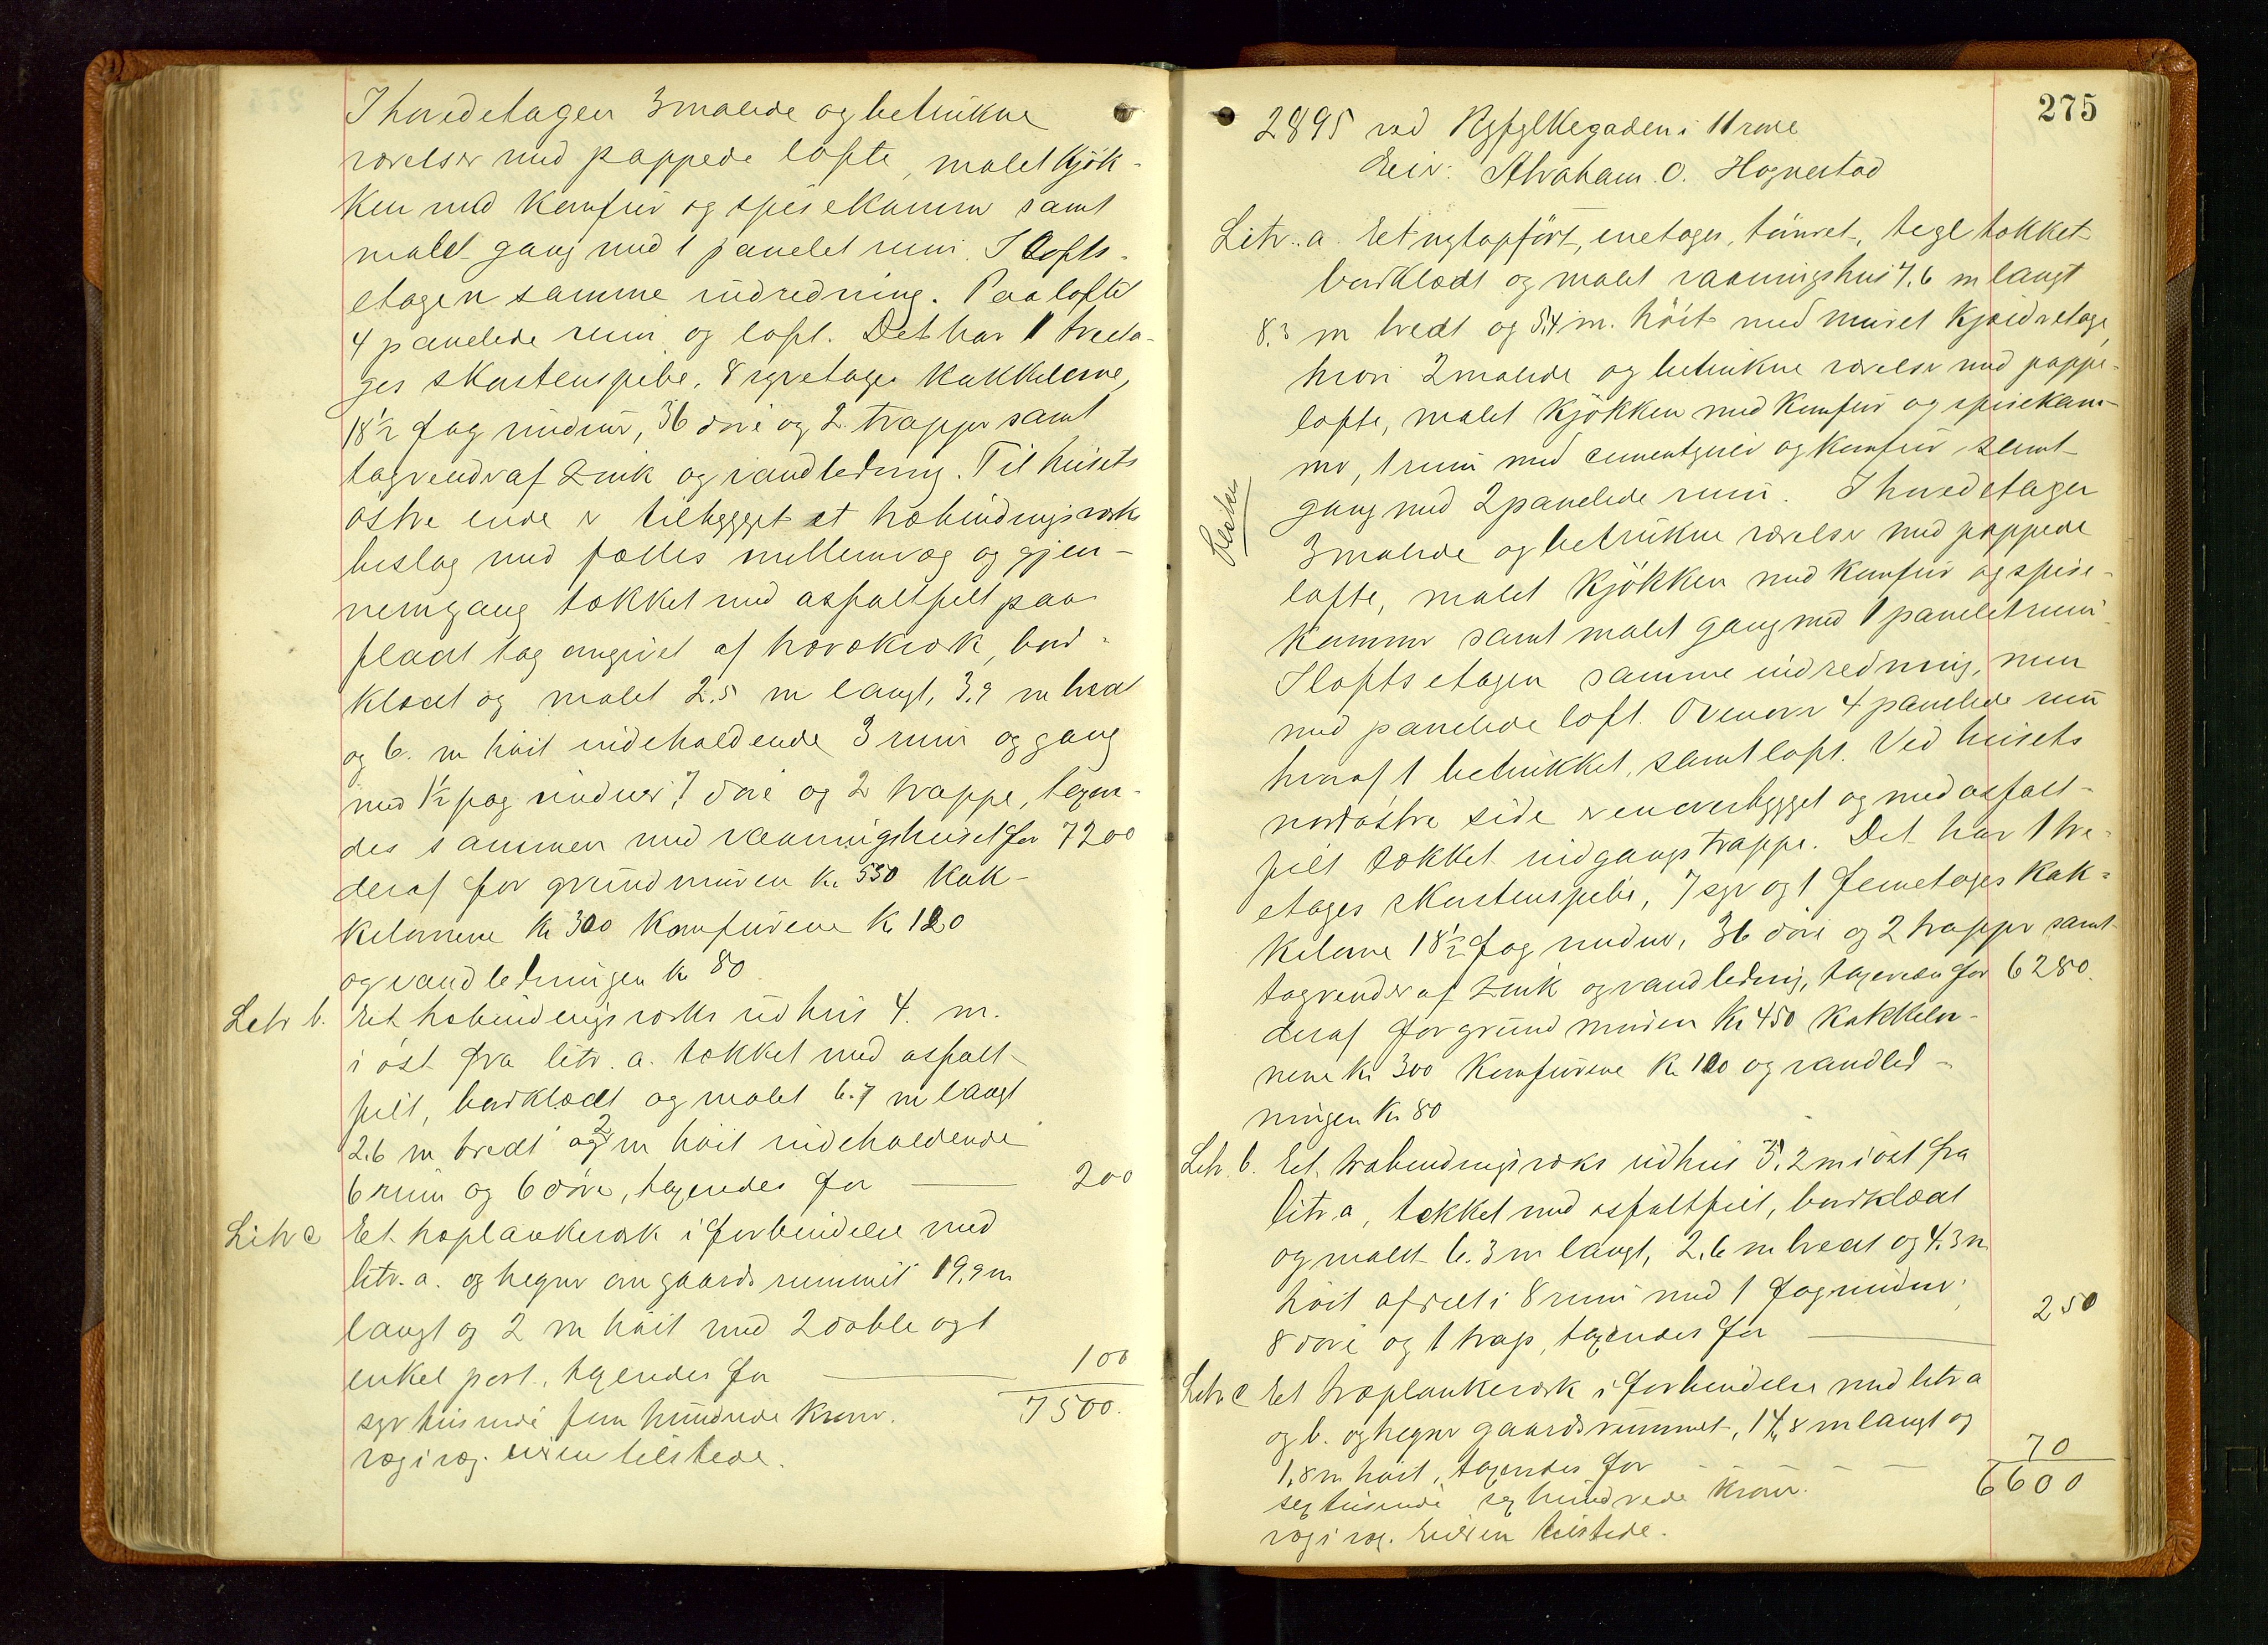 I hovedetagen 3 malede og betrukne
værelser med pappede lofte, malet kjøk-
ken med komfur og spisekammer samt
malet gang med 1 panelet rum. I Lofts-
etagen samme indredning. Paa loftet
4 panelede rum og loft. Det har 1 treeta-
ges skorstenspibe, 8 syvetages kakkelovne,
18½ fag vinduer, 36 døre og 2 trapper samt
tagrender af zink og vandledning. Til husets
østre ende er tilbygget et træbindingsværks
beslag med fælles mellemvæg og gjen-
nemgang tækket med asfaltfilt paa
fladt tag omgivet af træværk, bord-
klædt og malet 2.5 m langt, 3.9 m bredt
og 6. m høit indeholdende 3 rum og gang
med 1½ fag vinduer, 7 døre og 2 trapper, taxeres-
des sammen med vaaningshuset for 7200
deraf for grundmuren kr. 550 kak-
kelovnene kr 300 komfurene kr 120
og vandledningen kr 80
Litr b. Et træbindingsværks udhus 4. m.
i øst fra litr. a. tækket med asfalt-
filt, bordklædt og malet 6.7 m langt
2.6 m bredt og 2 m høit indeholdende
6 rum og 6 døre, taxeredes for 200
Litr c Et træplankeværk i forbindelse med
litr. a. og hegner om gaardsrummet 19.9 m
langt og 2 m høit med 2 doble og 1
enkel port, taxeredes for 100
syv tusinde fem hundrede kroner. 7500.
væg i væg. Eieren tilstede.
275
2895 ved Ryfylkegaden i Hroe
Eier: Abraham. O. Hognestad
Litr. a. Et nyt opført, enetages, tømret, tegltækket
bordklædt og malet vaaningshus 7.6 m langt
8.3 m bredt og 5.4 m. høit med muret kjælderetage,
hvori 2 malede og betrukne værelser med pappe-
lofte, malet kjøkken med komfur og spisekam-
mer, 1 rum med cementgulv og komfur samt
gang med 2 panelede rum. I hovedetagen
3 malede og betrukne værelser med pappede
lofte, malet kjøkken med komfur og spise-
kammer samt malet gang med 1 panelet rum.
I loftsetagen samme indredning, men
med panelede loft. Ovenover 4 panelede rum
hvoraf 1 betrukket, samt loft. Ved husets
nordøstre side er en overbygget og med asfalt-
filt tækket indgangstrappe. Det har 1 tre-
etages skorstenspibe, 7 syv og 1 femetages kak-
kelovne 18½ fag vinduer, 36 døre og 2 trapper samt
tagrender af zink og vandledning, taxeredes for 6280.
deraf for grundmuren kr 450 kakkelov-
nene kr 300 komfurene kr 120 og vandled-
ningen kr. 80
Litr. b. Et træbindingsværks udhus 5.2 m i øst fra
litr a, tækket med asfaltfilt, bordklædt
og malet 6.3 m langt, 2.6 m bredt og 4.3 m
høit afdelt i 8 rum med 1 fag vinduer,
8 døre og 1 trap, taxeredes for 250
Litr c Et træplankeværk i forbindelse med litr a
og b. og hegner gaardsrummet, 14.8 m langt og
1.8 m høit, taxeredes for 70
sex tusinde sex hundrede kroner. 6600
væg i væg. Eieren tilstede.